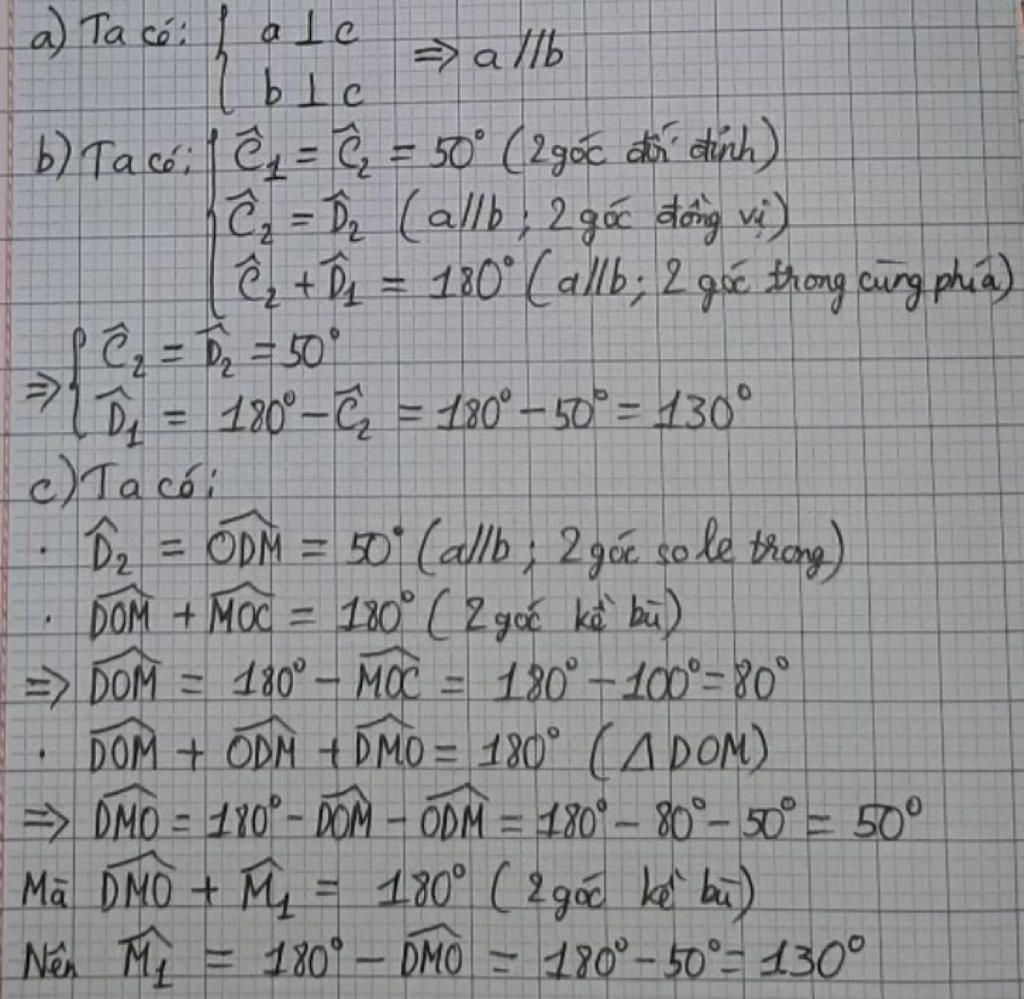 a) Ta có: { a ⊥ c
b ⊥ c ⇒ a//b
b) Ta có: { Ĉ₁ = Ĉ₂ = 50° (2 góc đối đỉnh)
Ĉ₂ = D̂₂ (a//b; 2 góc đồng vị)
Ĉ₂ + D̂₁ = 180° (a//b; 2 góc trong cùng phía)
⇒ { Ĉ₂ = D̂₂ = 50°
D̂₁ = 180° - Ĉ₂ = 180° - 50° = 130°
c) Ta có:
· D̂₂ = \widehat{ODM} = 50° (a//b; 2 góc so le trong)
· \widehat{DOM} + \widehat{MOC} = 180° (2 góc kề bù)
⇒ \widehat{DOM} = 180° - \widehat{MOC} = 180° - 100° = 80°
· \widehat{DOM} + \widehat{ODM} + \widehat{DMO} = 180° (Δ DOM)
⇒ \widehat{DMO} = 180° - \widehat{DOM} - \widehat{ODM} = 180° - 80° - 50° = 50°
Mà \widehat{DMO} + M̂₁ = 180° (2 góc kề bù)
Nên M̂₁ = 180° - \widehat{DMO} = 180° - 50° = 130°